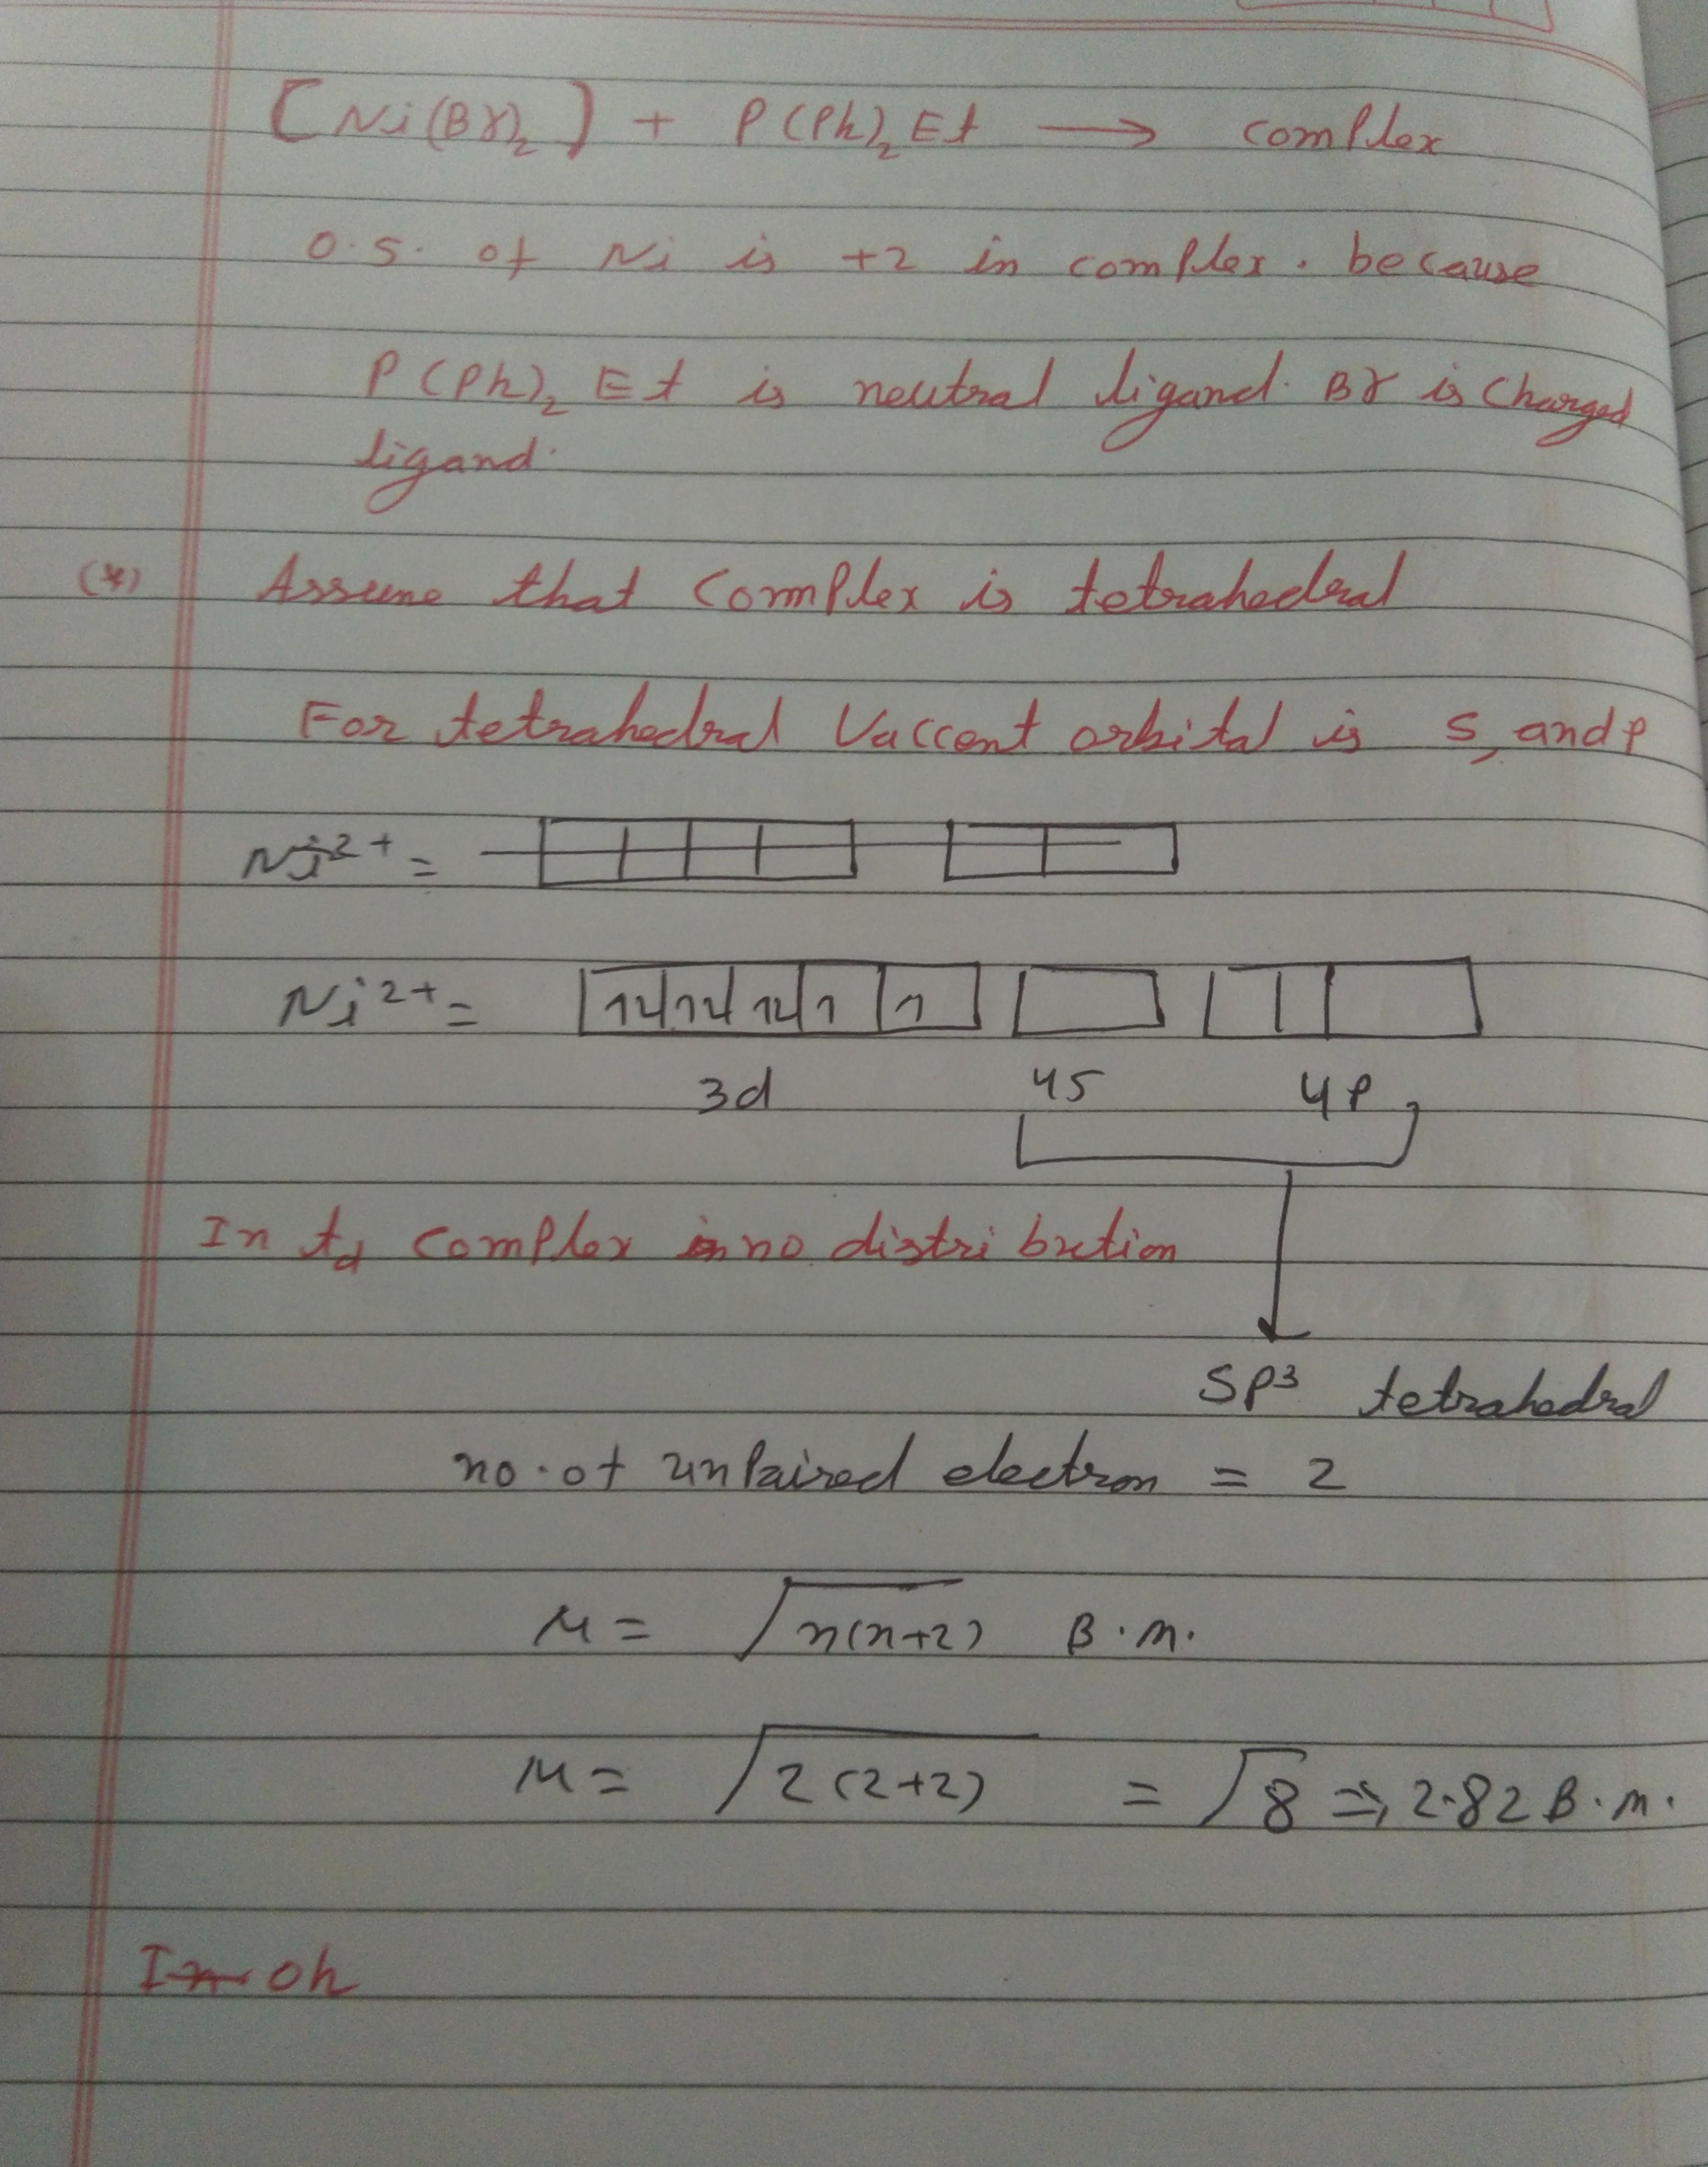 [Ni(Br)₂] + P(Ph)₂Et → complex
O.S. of Ni is +2 in complex. because
P(Ph)₂ Et is neutral ligand. Br is Charged
ligand.
(*) Assume that Complex is tetrahedral
For tetrahedral Vaccent orbital is s, and p
Ni²⁺ =
Ni²⁺ = 1↓ 1↓ 1↓ 1 1
3d 4s 4p
In td complex no distribution
SP³ tetrahedral
no. of unpaired electron = 2
μ = √n(n+2) B.M.
μ = √2(2+2) = √8 ⇒ 2.82 B.M.
In oh